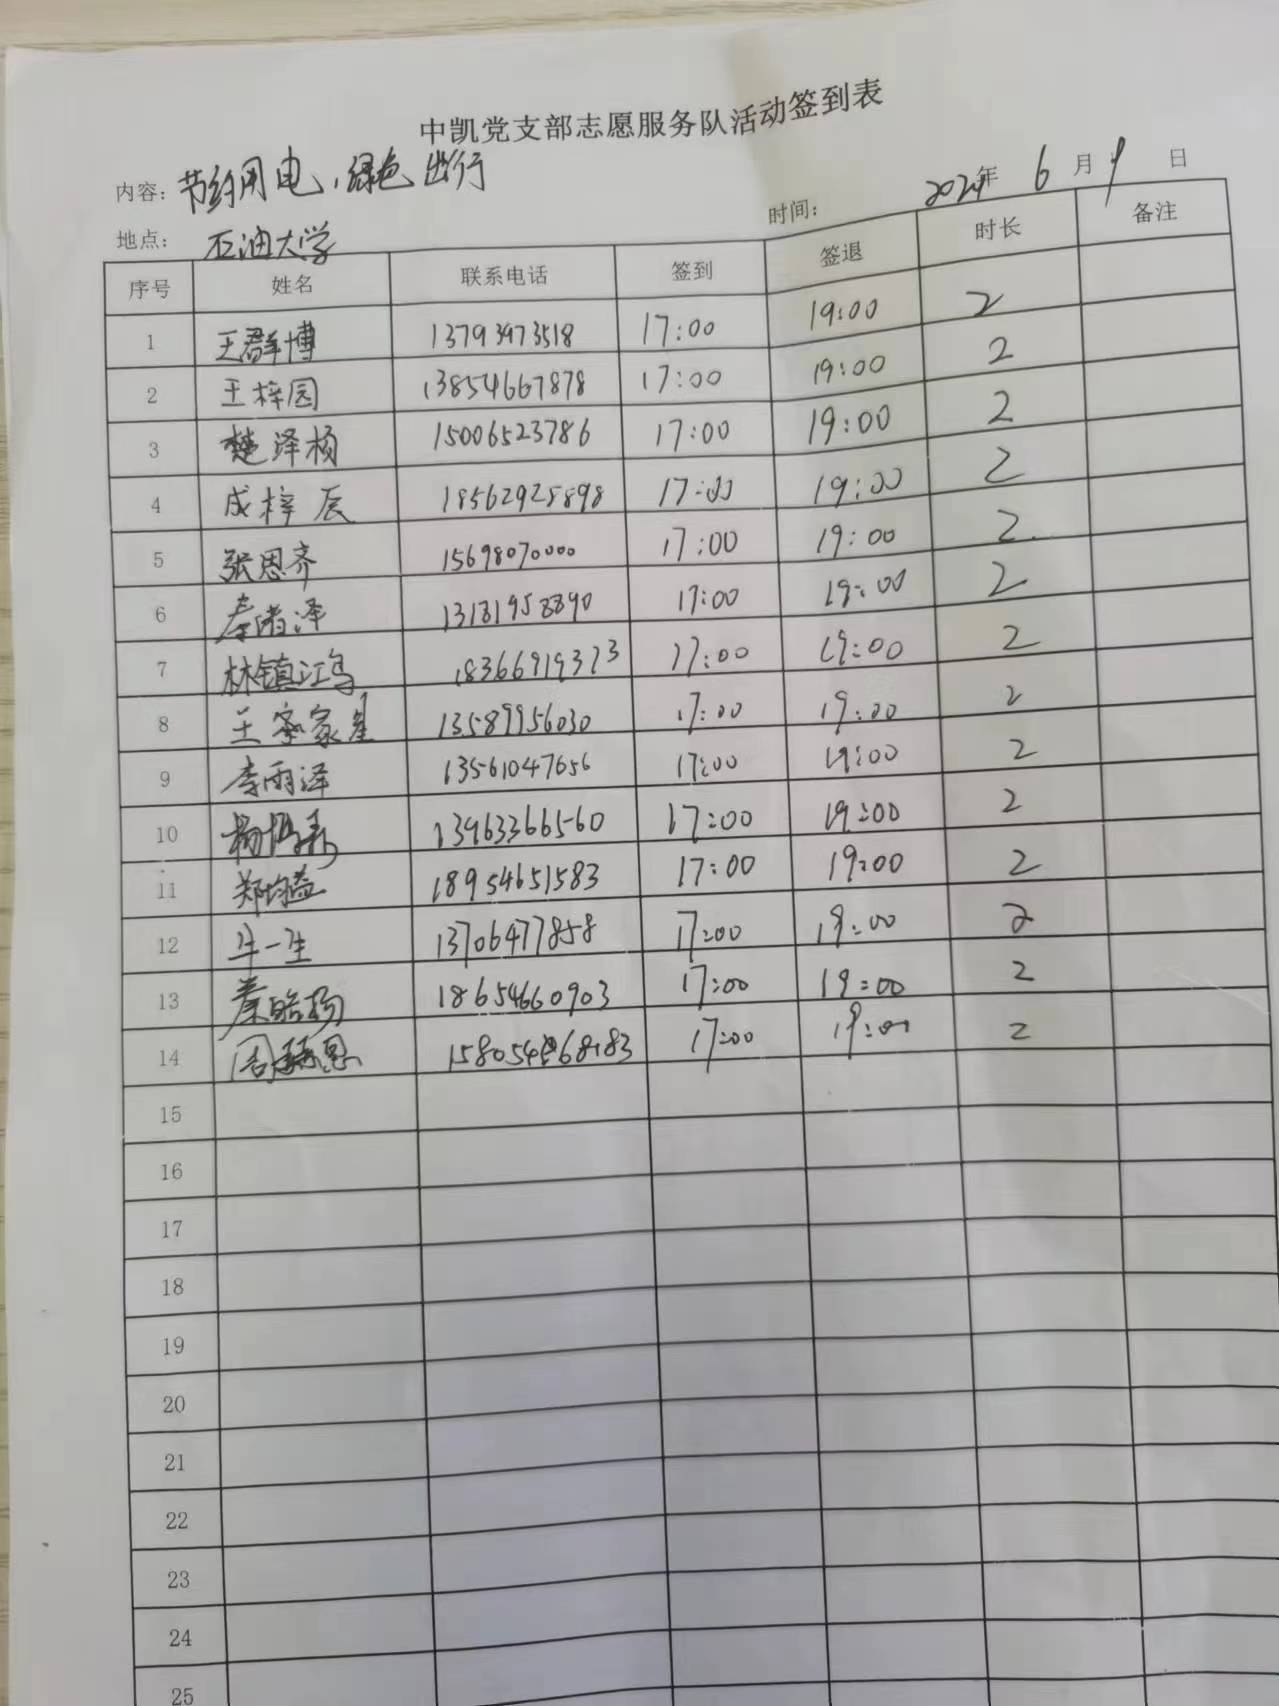 中凯党支部志愿服务队活动签到表
内容: 节约用电,绿色出行
时间: 2024年 6月9日
地点: 石油大学
序号 姓名 联系电话 签到 签退 时长 备注
1 王群博 13793973518 17:00 19:00 2
2 王梓园 13854667878 17:00 19:00 2
3 楚泽杨 15006523786 17:00 19:00 2
4 成梓辰 18562928898 17:00 19:00 2
5 张恩齐 15698070000 17:00 19:00 2
6 秦浩泽 13181958890 17:00 19:00 2
7 林镇江 18366919373 17:00 19:00 2
8 王家星 13589956030 17:00 19:00 2
9 李雨泽 13561047656 17:00 19:00 2
10 杨 13963366560 17:00 19:00 2
11 郑均益 18954651583 17:00 19:00 2
12 牛一生 13706477858 17:00 19:00 2
13 秦皓扬 18654660903 17:00 19:00 2
14 周恩 17:00 19:00 2
15
16
17
18
19
20
21
22
23
24
25